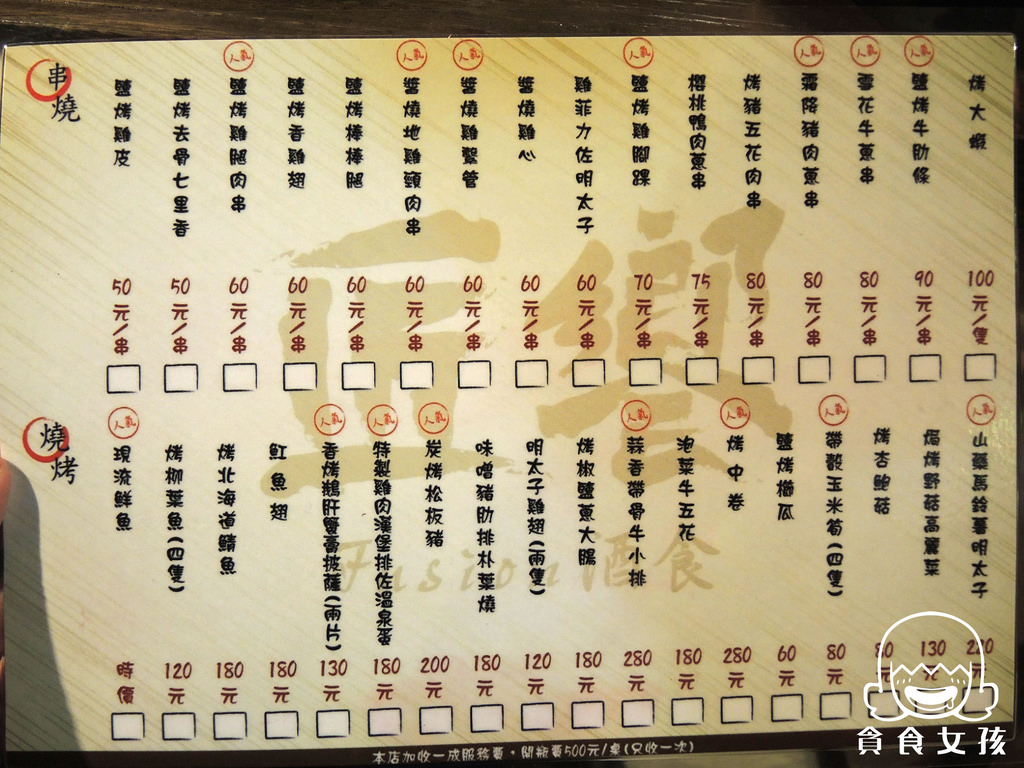 串燒
鹽烤雞皮 50元/串
鹽烤去骨七里香 50元/串
人氣 鹽烤雞腿肉串 60元/串
鹽烤香雞翅 60元/串
鹽烤棒棒腿 60元/串
人氣 醬燒地雞頸肉串 60元/串
人氣 醬燒雞蟹管 60元/串
醬燒雞心 60元/串
雞菲力佐明太子 60元/串
人氣 鹽烤雞腳踝 70元/串
櫻桃鴨肉蔥串 75元/串
烤豬五花肉串 80元/串
人氣 霜降豬肉蔥串 80元/串
人氣 雪花牛蔥串 80元/串
人氣 鹽烤牛肋條 90元/串
烤大蝦 100元/隻
燒烤
人氣 現流鮮魚 時價
烤柳葉魚(四隻) 120元
烤北海道鯖魚 180元
魟魚翅 180元
人氣 香烤鵝肝蟹膏披薩(兩片) 130元
人氣 特製雞肉漢堡排佐溫泉蛋 180元
人氣 炭烤松板豬 200元
味噌豬肋排朴葉燒 180元
明太子雞翅(兩隻) 120元
烤椒鹽蔥大腸 180元
人氣 蒜香帶骨牛小排 280元
泡菜牛五花 180元
人氣 烤中卷 280元
鹽烤櫛瓜 60元
人氣 帶殼玉米筍(四隻) 80元
烤杏鮑菇 80元
焗烤野菇高麗菜 130元
人氣 山藥馬鈴薯明太子 220元
正饗
Fusion酒食
本店加收一成服務費,開瓶費500元/桌(只收一次)
貪食女孩